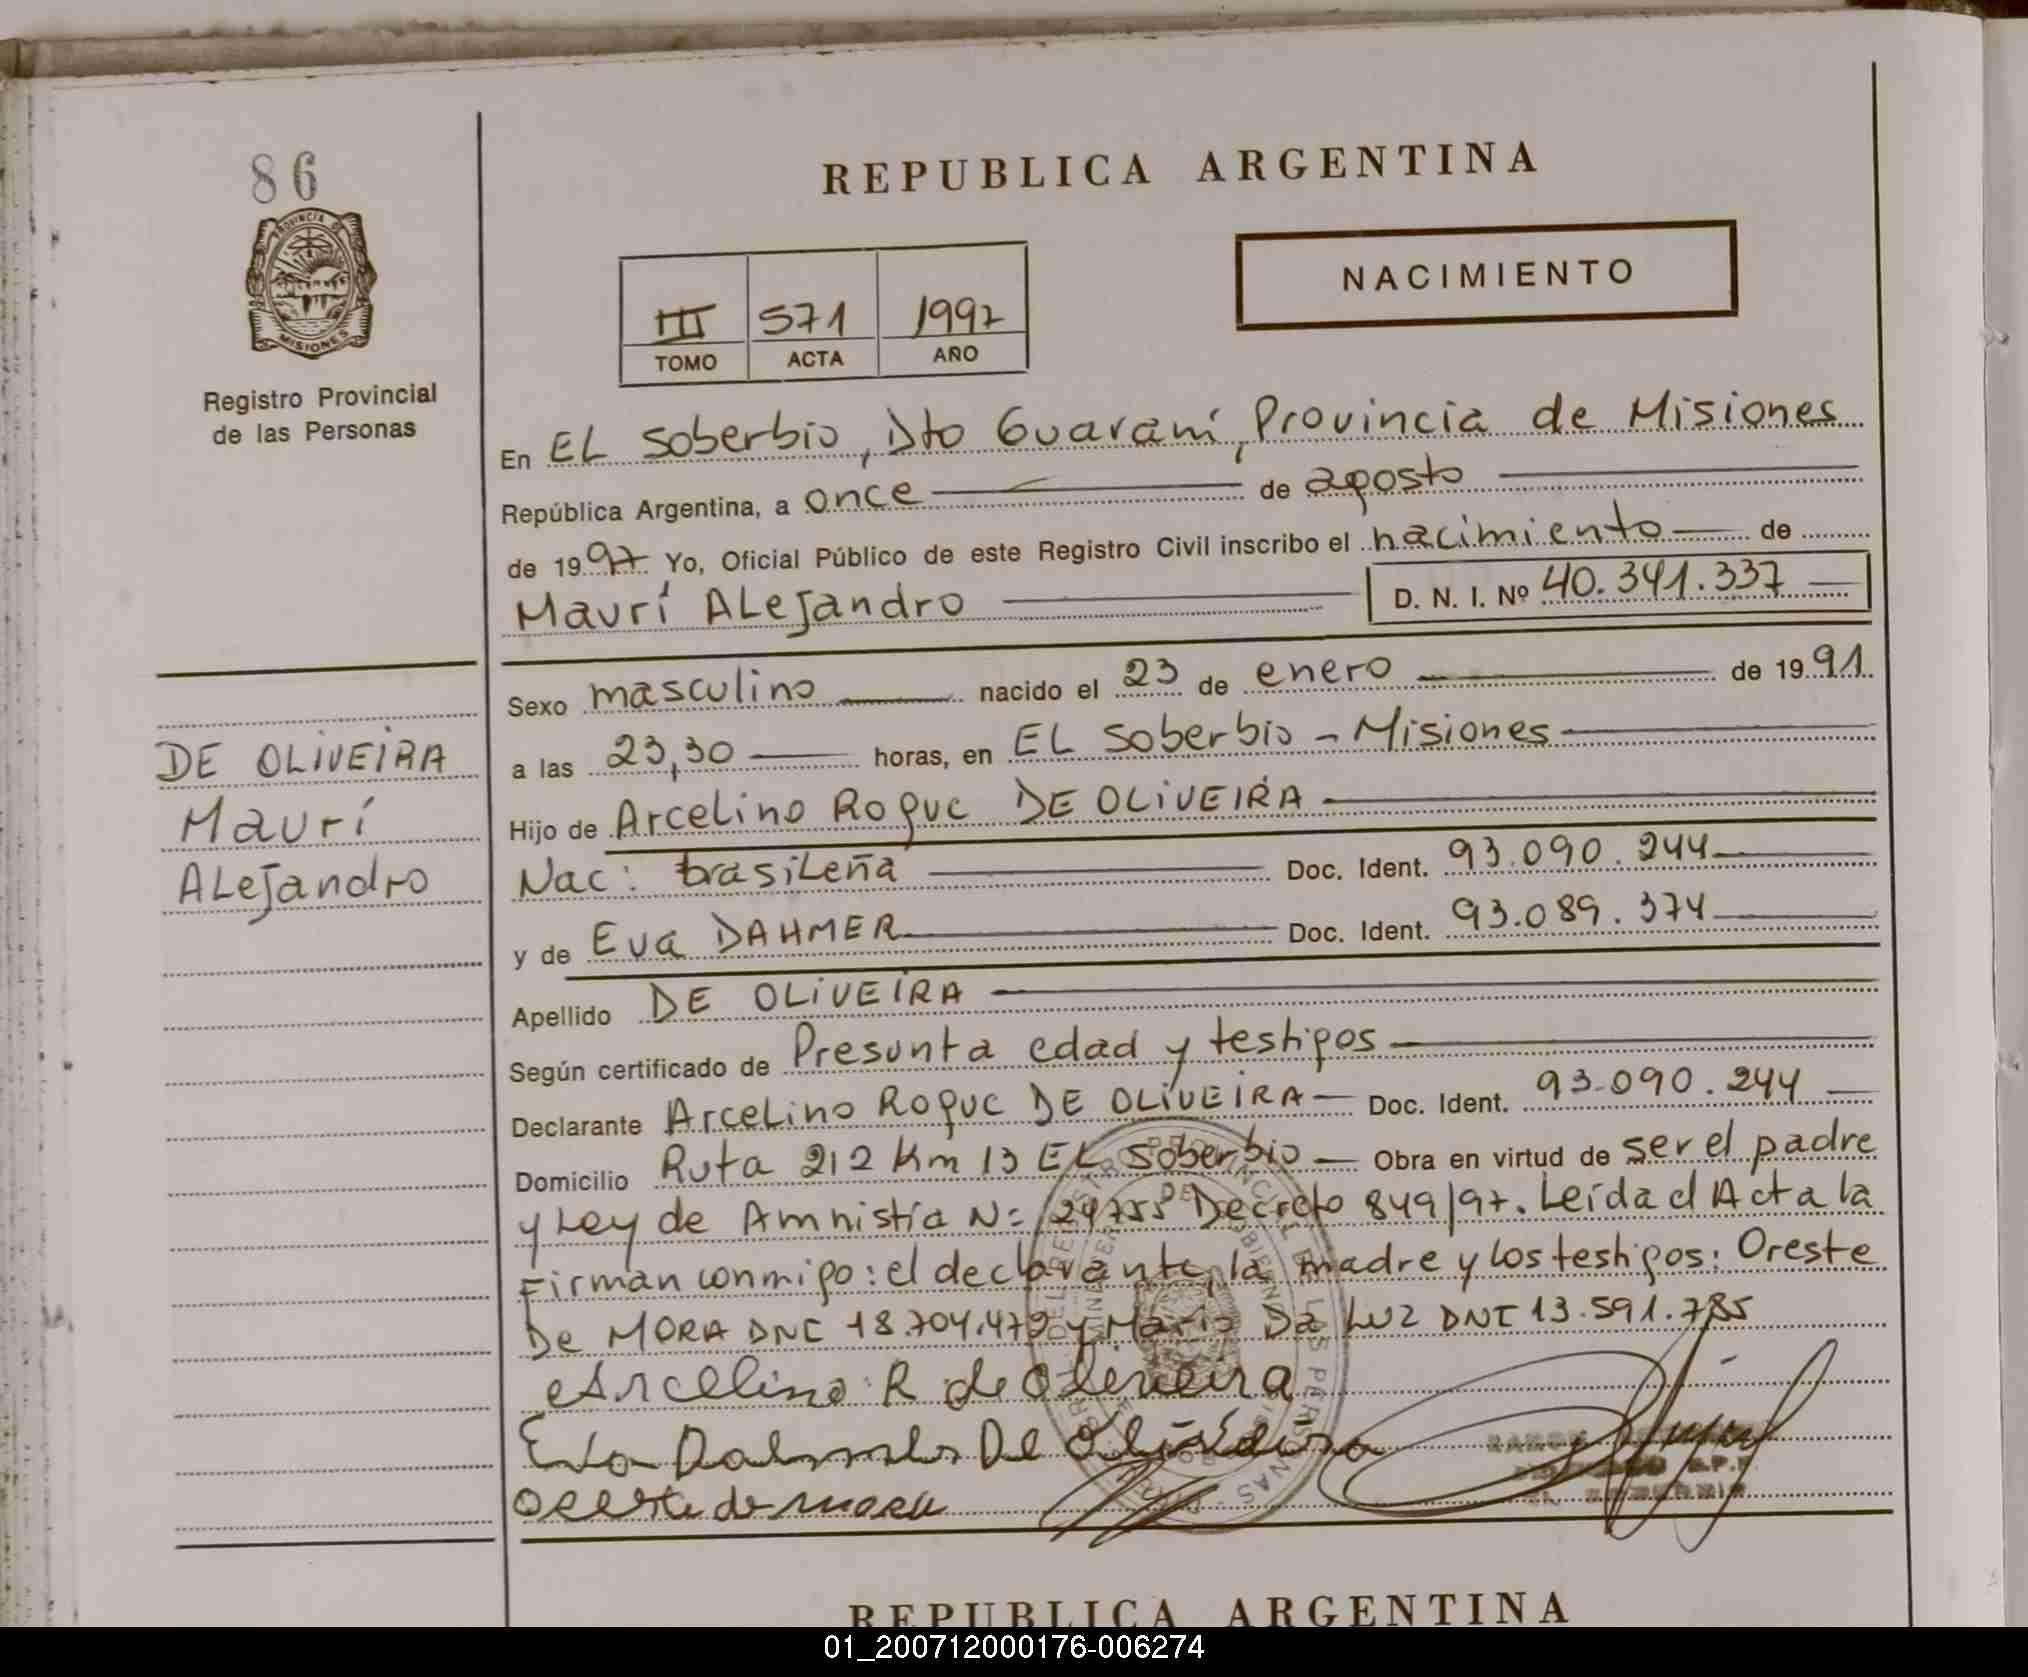 86
REPUBLICA ARGENTINA
NACIMIENTO
III 571 1997
TOMO ACTA AÑO
PROVINCIA DE
MISIONES
Registro Provincial
de las Personas
En EL Soberbio, Dto Guaraní, Provincia de Misiones
República Argentina, a once de agosto
de 1997 Yo, Oficial Público de este Registro Civil inscribo el nacimiento de
Maurí ALejandro D. N. I. Nº 40.341.337
Sexo masculino nacido el 23 de enero de 1991
DE OLIVEIRA
Maurí
ALejandro
a las 23,30 horas, en EL Soberbio - Misiones
Hijo de Arcelino Roque DE OLIVEIRA
Nac: brasiLeña Doc. Ident. 93.090.244
y de Eva DAHMER Doc. Ident. 93.089.374
Apellido DE OLIVEIRA
Según certificado de Presunta edad y testigos
Declarante ArceLino Roque DE OLIVEIRA Doc. Ident. 93.090.244
Domicilio Ruta 212 Km 13 EL Soberbio Obra en virtud de ser el padre
y Ley de Amnistía Nº 24755 Decreto 849/97. Leída el Acta la
Firman conmigo: el declarante, la madre y los testigos: Oreste
De MORA DNI 18.704.479 y Maria Da Luz DNI 13.591.785
Arcelino R de Oliveira
Eva De Oliveira
Oreste de mora
REPUBLICA ARGENTINA
01_200712000176-006274